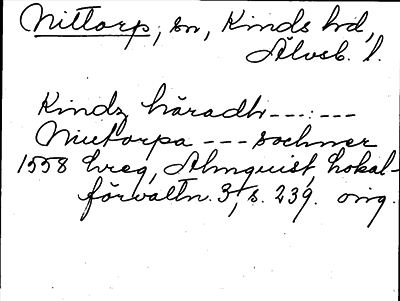 Nittorp, sn, Kinds hd,
Älvsb. l.
Kindz häradh ---:---
Niutorpa --- sochner
1558 hreg, Almquist, Lokal-
förvaltn. 3, s. 239. orig.